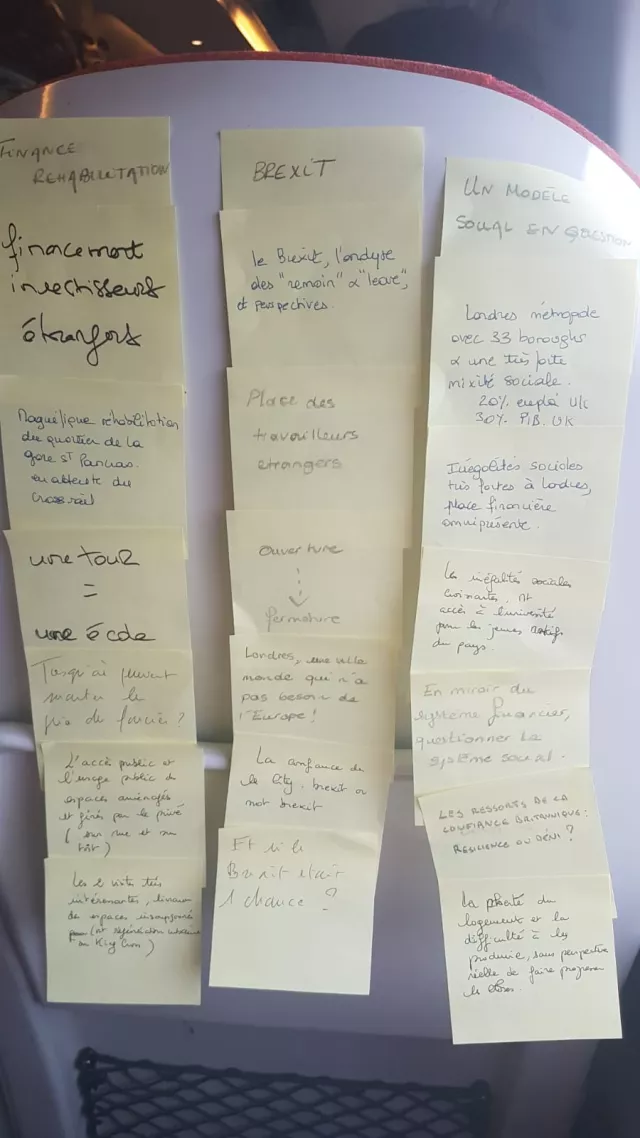 FINANCE
REHABILITATION
financement
investisseurs
étrangers
Magnifique réhabilitation
du quartier de la
gare St Pancras.
en attente du
Crossrail
une tour
=
une école
Jusqu'où peuvent
monter le
prix du foncier ?
L'accès public et
l'usage public des
espaces aménagés
et gérés par le privé
( sur rue et sur
toit )
Les 2 visites très
intéressantes,
espaces
King Cross )
BREXIT
le Brexit, l'analyse
des "remain" & "leave",
et perspectives.
Place des
travailleurs
etrangers
ouverture
fermeture
Londres, une ville
monde qui n'a
pas besoin de
l'Europe !
La confiance de
la City. brexit or
not brexit
Et si le
Brexit etait
1 chance ?
UN MODÈLE
SOCIAL EN QUESTION
Londres métropole
avec 33 boroughs
& une très forte
mixité sociale.
20% emploi UK
30% PIB. UK
Inégalités sociales
très fortes à Londres,
place financière
omniprésente.
Les inégalités sociales
croissantes, et
accès à l'université
pour les jeunes
du pays.
En miroir du
système financier,
questionner le
système social.
LES RESSORTS DE LA
CONFIANCE BRITANNIQUE :
RESILIENCE OU DÉNI ?
La cherté du
logement et la
difficulté à les
produire, sans perspective
réelle de faire progresser
les choses.